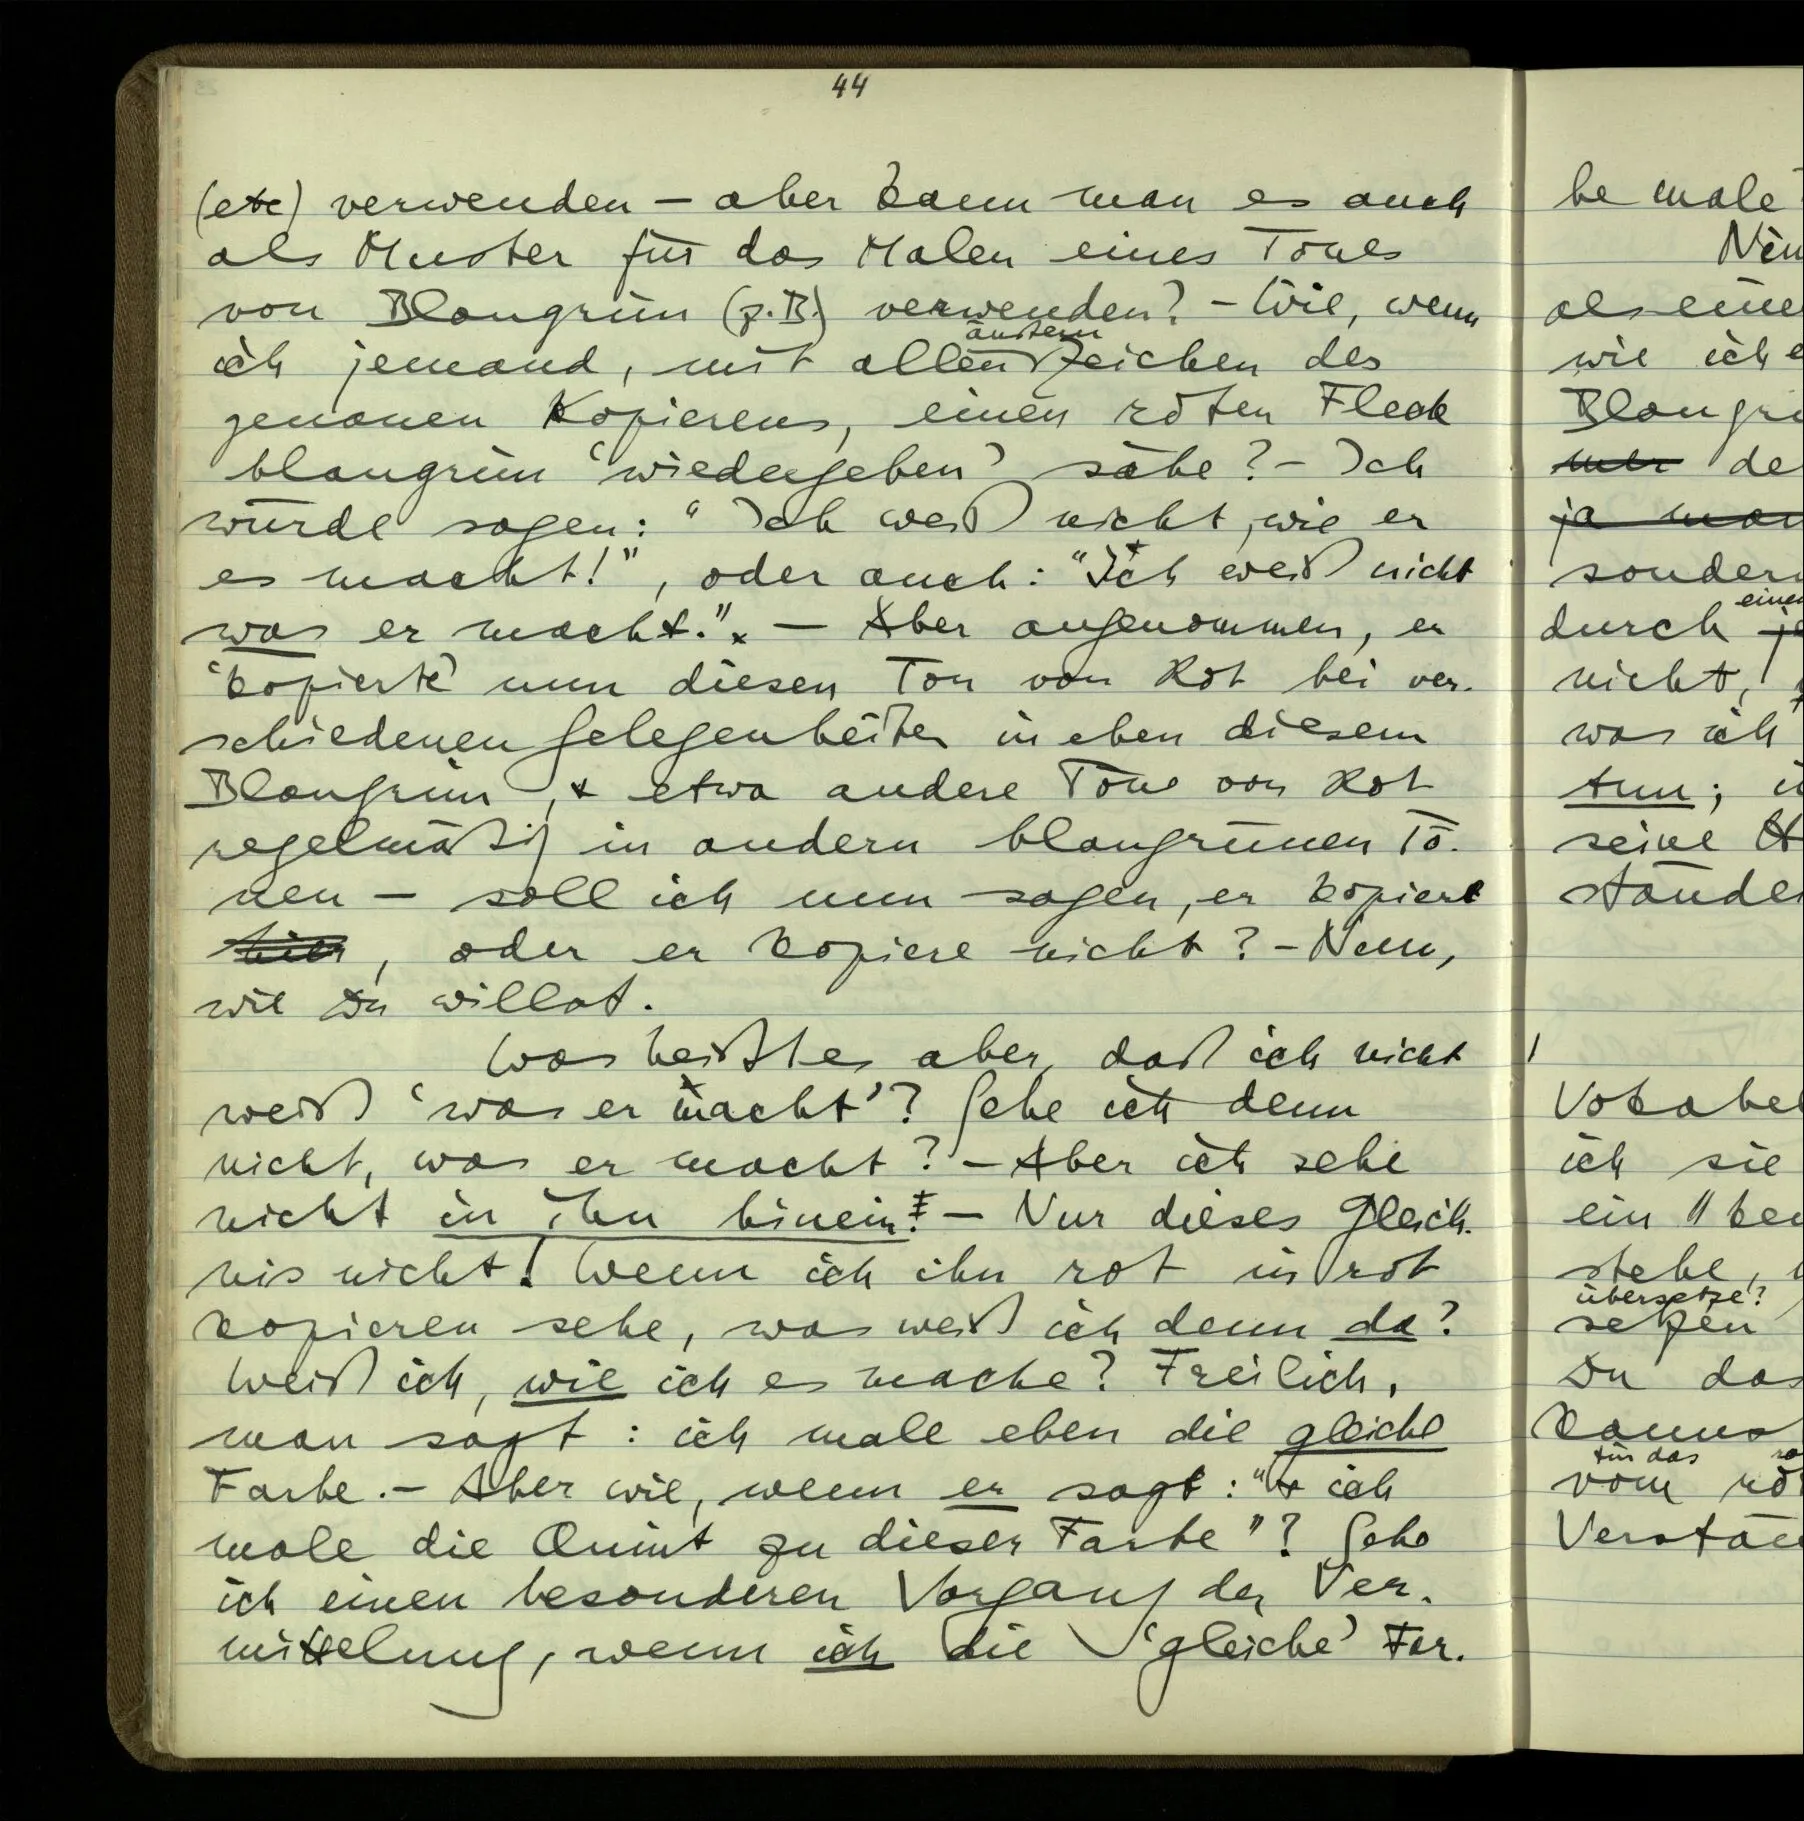 44
(etc) verwenden – aber kann man es auch
als Muster für das Malen eines Tones
von Blaugrün (z.B.) verwenden? – Wie, wenn
äußern
ich jemand, mit allen Zeichen des
genauen Kopierens, einen roten Fleck
blaugrün ‘wiedergeben’ sähe? – Ich
würde sagen: “Ich weiß nicht, wie er
es macht!”, oder auch: “Ich weiß nicht
was er macht.” – Aber angenommen, er
‘kopierte’ nun diesen Ton von Rot bei ver-
schiedenen Gelegenheiten in eben diesem
Blaugrün, & etwa andere Töne von Rot
regelmäßig in andern blaugrünen Tö-
nen – soll ich nun sagen, er kopiere
hier, oder er kopiere nicht? – Nun,
wie Du willst.
Was heißt es aber, daß ich nicht
weiß ‘was er macht’? Sehe ich denn
nicht, was er macht? – Aber ich sehe
nicht in ihn hinein! – Nur dieses Gleich-
nis nicht! Wenn ich ihn rot in rot
kopieren sehe, was weiß ich denn da?
Weiß ich, wie ich es mache? Freilich,
man sagt: ich male eben die gleiche
Farbe. – Aber wie, wenn er sagt: “& ich
male die Quint zu dieser Farbe”? Sehe
ich einen besonderen Vorgang der Ver-
mittelung, wenn ich die ‘gleiche’ Far-
be male
als eine
wie ich
Blaugrü
de
ja man
sondern
einen
durch
nicht,
was ich
tun;
seine
stände
Vokabel
ich sie
ein
stehe,
übersetze?
setzen
Du das
für das
vom
Verstän